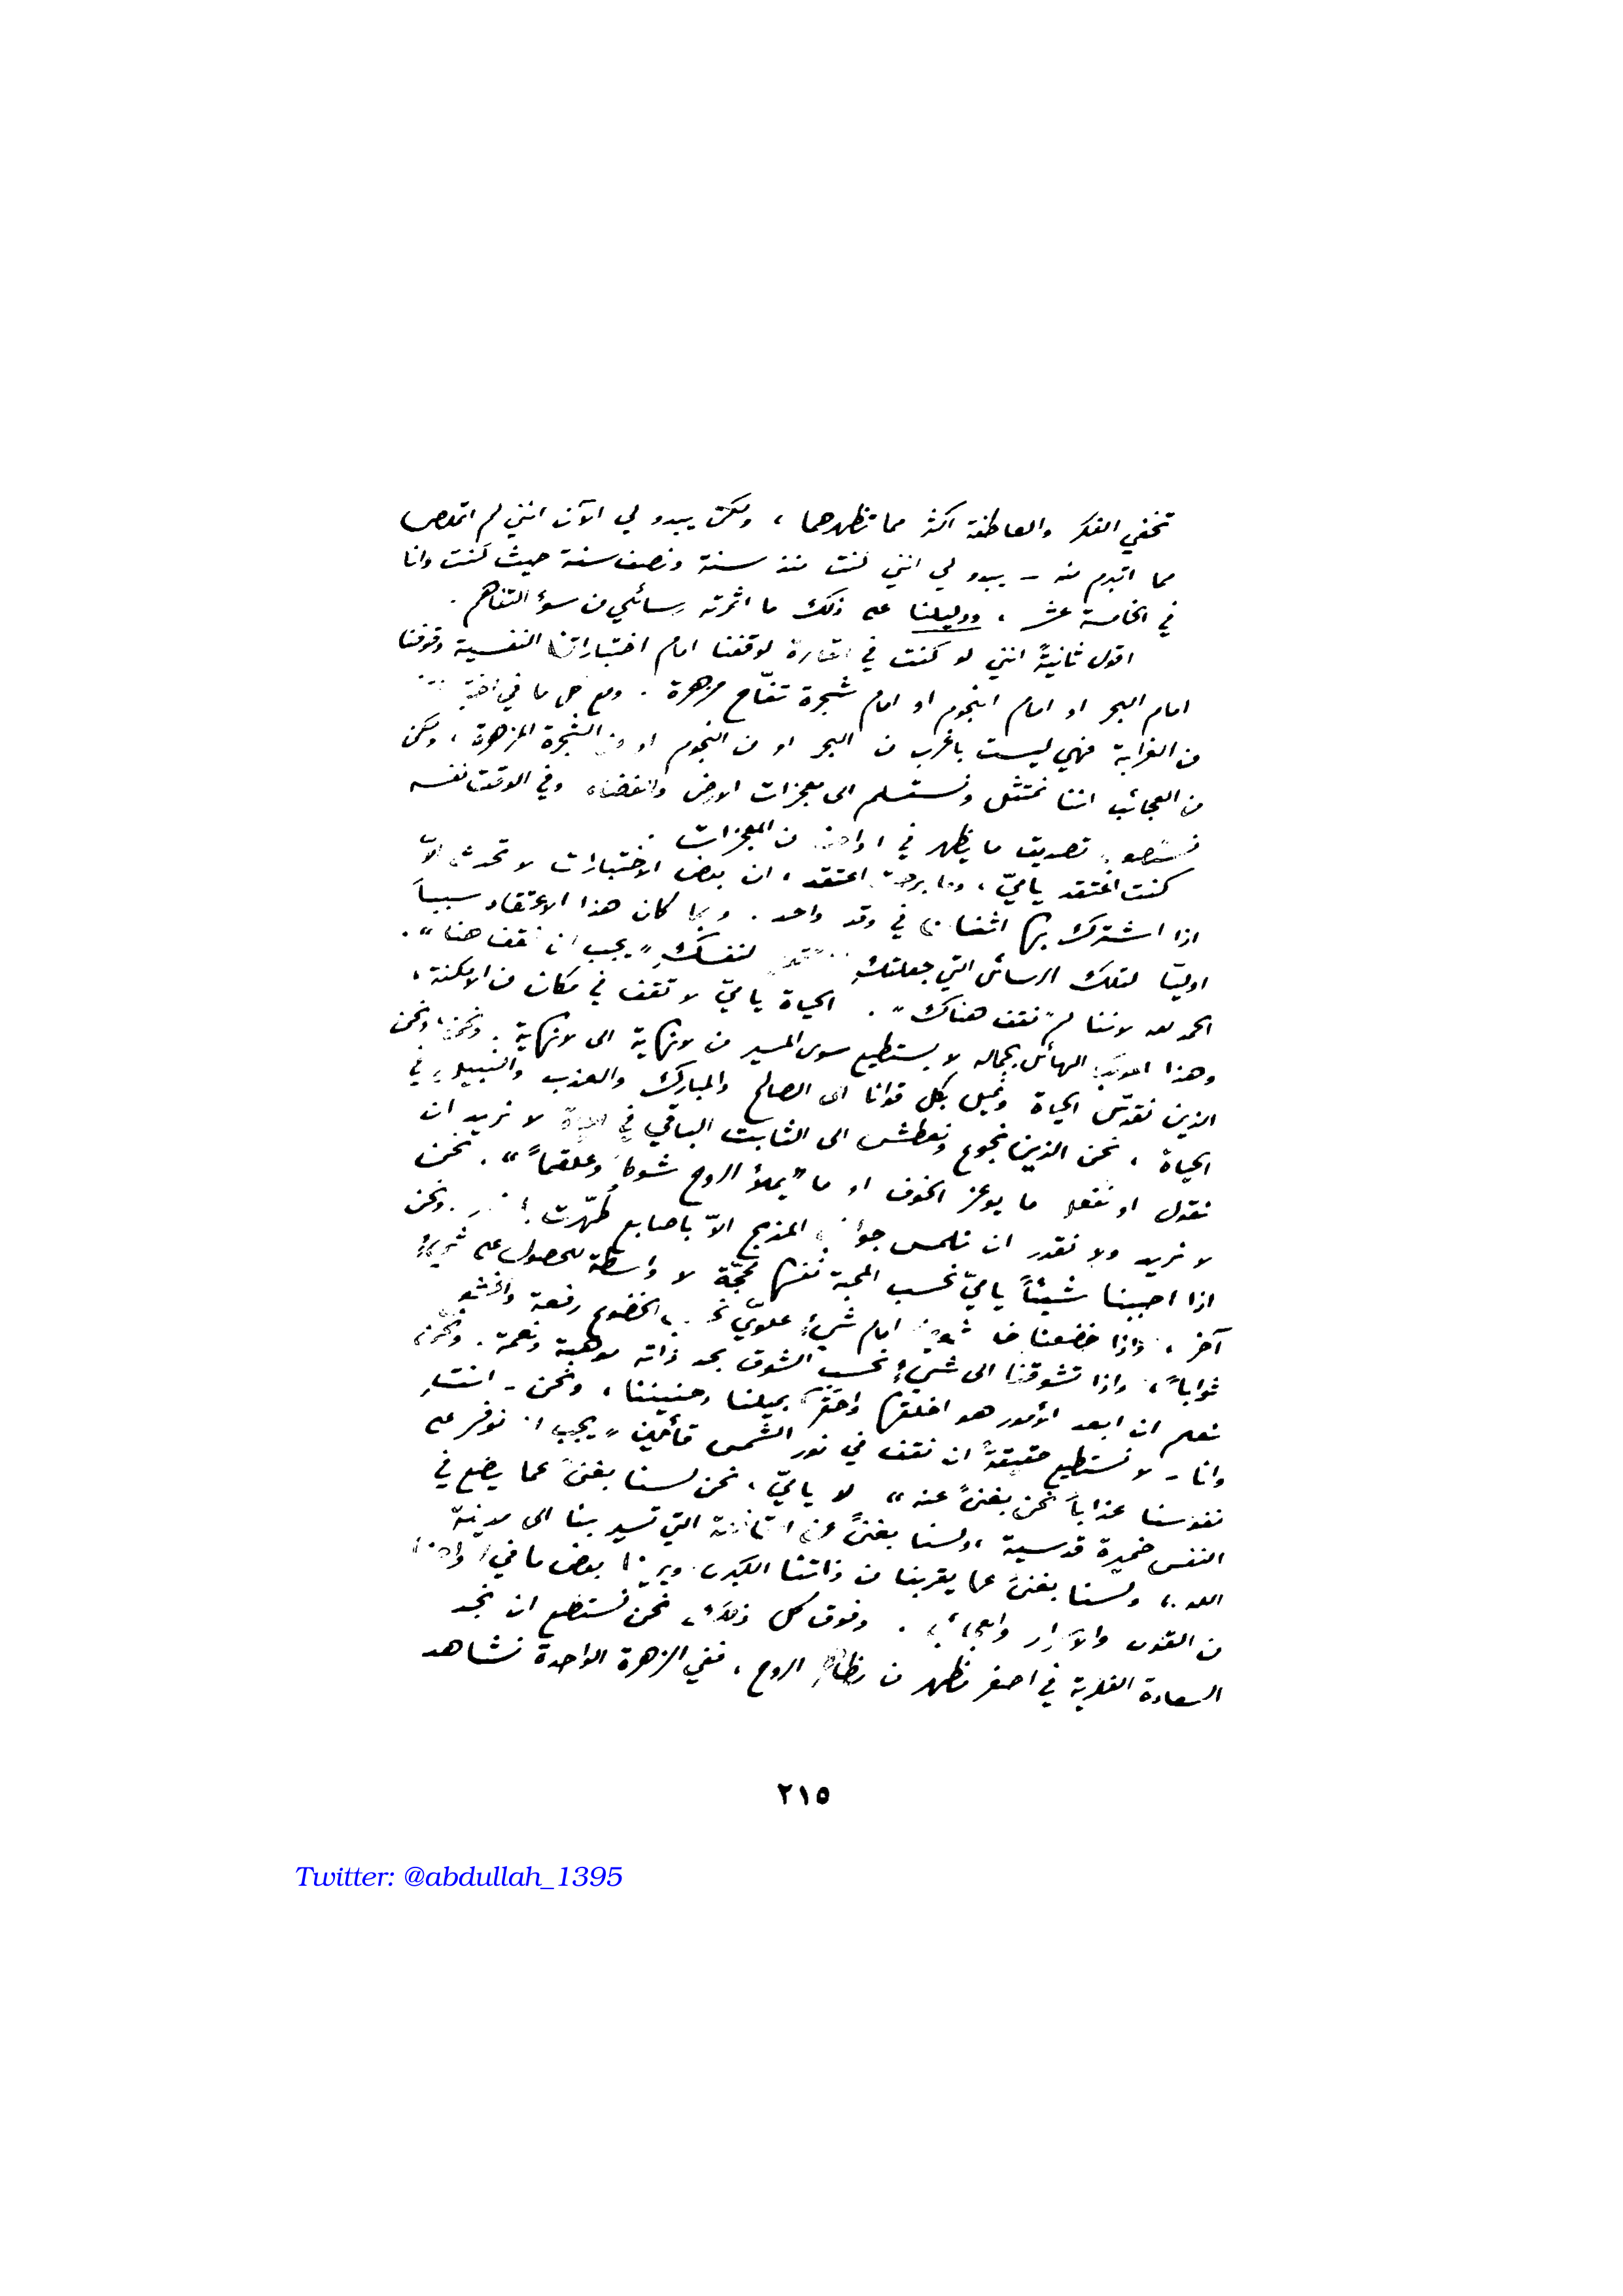 تخفي الفكر والعاطفة اكثر مما تظهرهما ، ولكن يبدو لي الآن انني لم اتملص
مما اتبرم منه – يبدو لي انني كنت منذ سنة ونصف سنة حيث كنت وانا
في الخامسة عشر ، ودليلنا على ذلك ما اثمرته رسائلي من سوء التفاهم .
اقول ثانيةً انني لو كنت في القاهرة لوقفنا امام اختباراتنا النفسية وقوفنا
امام البحر او امام النجوم او امام شجرة تفّاح مزهرة . ومع كل ما في
من الغرابة فهي ليست باغرب من البحر او من النجوم او من الشجرة المزهرة ، ولكن
من العجائب اننا نمتثل ونستسلم الى معجزات الارض والفضاء وفي الوقت نفسه
نستصعب تصديق ما يظهر في ارواحنا من المعجزات .
كنت اعتقد يا ميّ ، وما برحت اعتقد ، ان بعض الاختبارات لا تحدث الاّ
اذا اشترك بها اثنان في وقت واحد . وربما كان هذا الاعتقاد سبباً
اوليّاً لتلك الرسائل التي جعلتكِ لنفسكِ "يجب ان نقف هنا" .
الحمد لله لاننا لم "نقف هناك" . الحياة يا ميّ لا تقف في مكان من الامكنة ،
وهذا الموكب الهائل بجماله لا يستطيع سوى المسير من لانهاية الى لانهاية . ونحن ، ونحن
الذين نقدّس الحياة ونميل بكل قوانا الى الصالح والمبارك والعذب والنبيل في
الحياة ، نحن الذين نجوع ونعطش الى الثابت الباقي في الحياة لا نريد ان
نقول او نفعل ما يوعز الخوف او ما "يملأ الروح شوكاً وعلقماً" . نحن
لا نريد ولا نقدر ان نلمس جوانب المذبح الاّ باصابع طهّرت بالنار . ونحن
اذا احببنا شيئاً يا ميّ نحسب المحبة نفسها محجّة لا واسطة للحصول على شيءٍ
آخر ، واذا خضعنا خاشعين امام شيءٍ علويّ نحسب الخضوع رفعة والخشوع
ثواباً ، واذا تشوقنا الى شيءٍ نحسب الشوق بحد ذاته موهبة ونعمة . ونحن
نعلم ان ابعد الأمور هو اخلقها واحقّها بميلنا وحنيننا ، ونحن – انتِ
وانا – لا نستطيع حقيقةً ان نقف في نور الشمس قائلين "يجب ان نوفر على
نفوسنا عذاباً نحن بغنىً عنه" لا يا ميّ ، نحن لسنا بغنىً عما يضع في
النفس خميرة قدسية ، ولسنا بغنىً عن القافلة التي تسير بنا الى مدينة
الله ، ولسنا بغنىً عما يقربنا من ذاتنا الكبرى ويرينا بعض ما في ارواحنا
من القوى والاسرار والعجائب . وفوق كل ذلك ، نحن نستطيع ان نجد
السعادة الفكرية في اصغر مظهر من مظاهر الروح ، ففي الزهرة الواحدة نشاهد
٢١٥
Twitter: @abdullah_1395